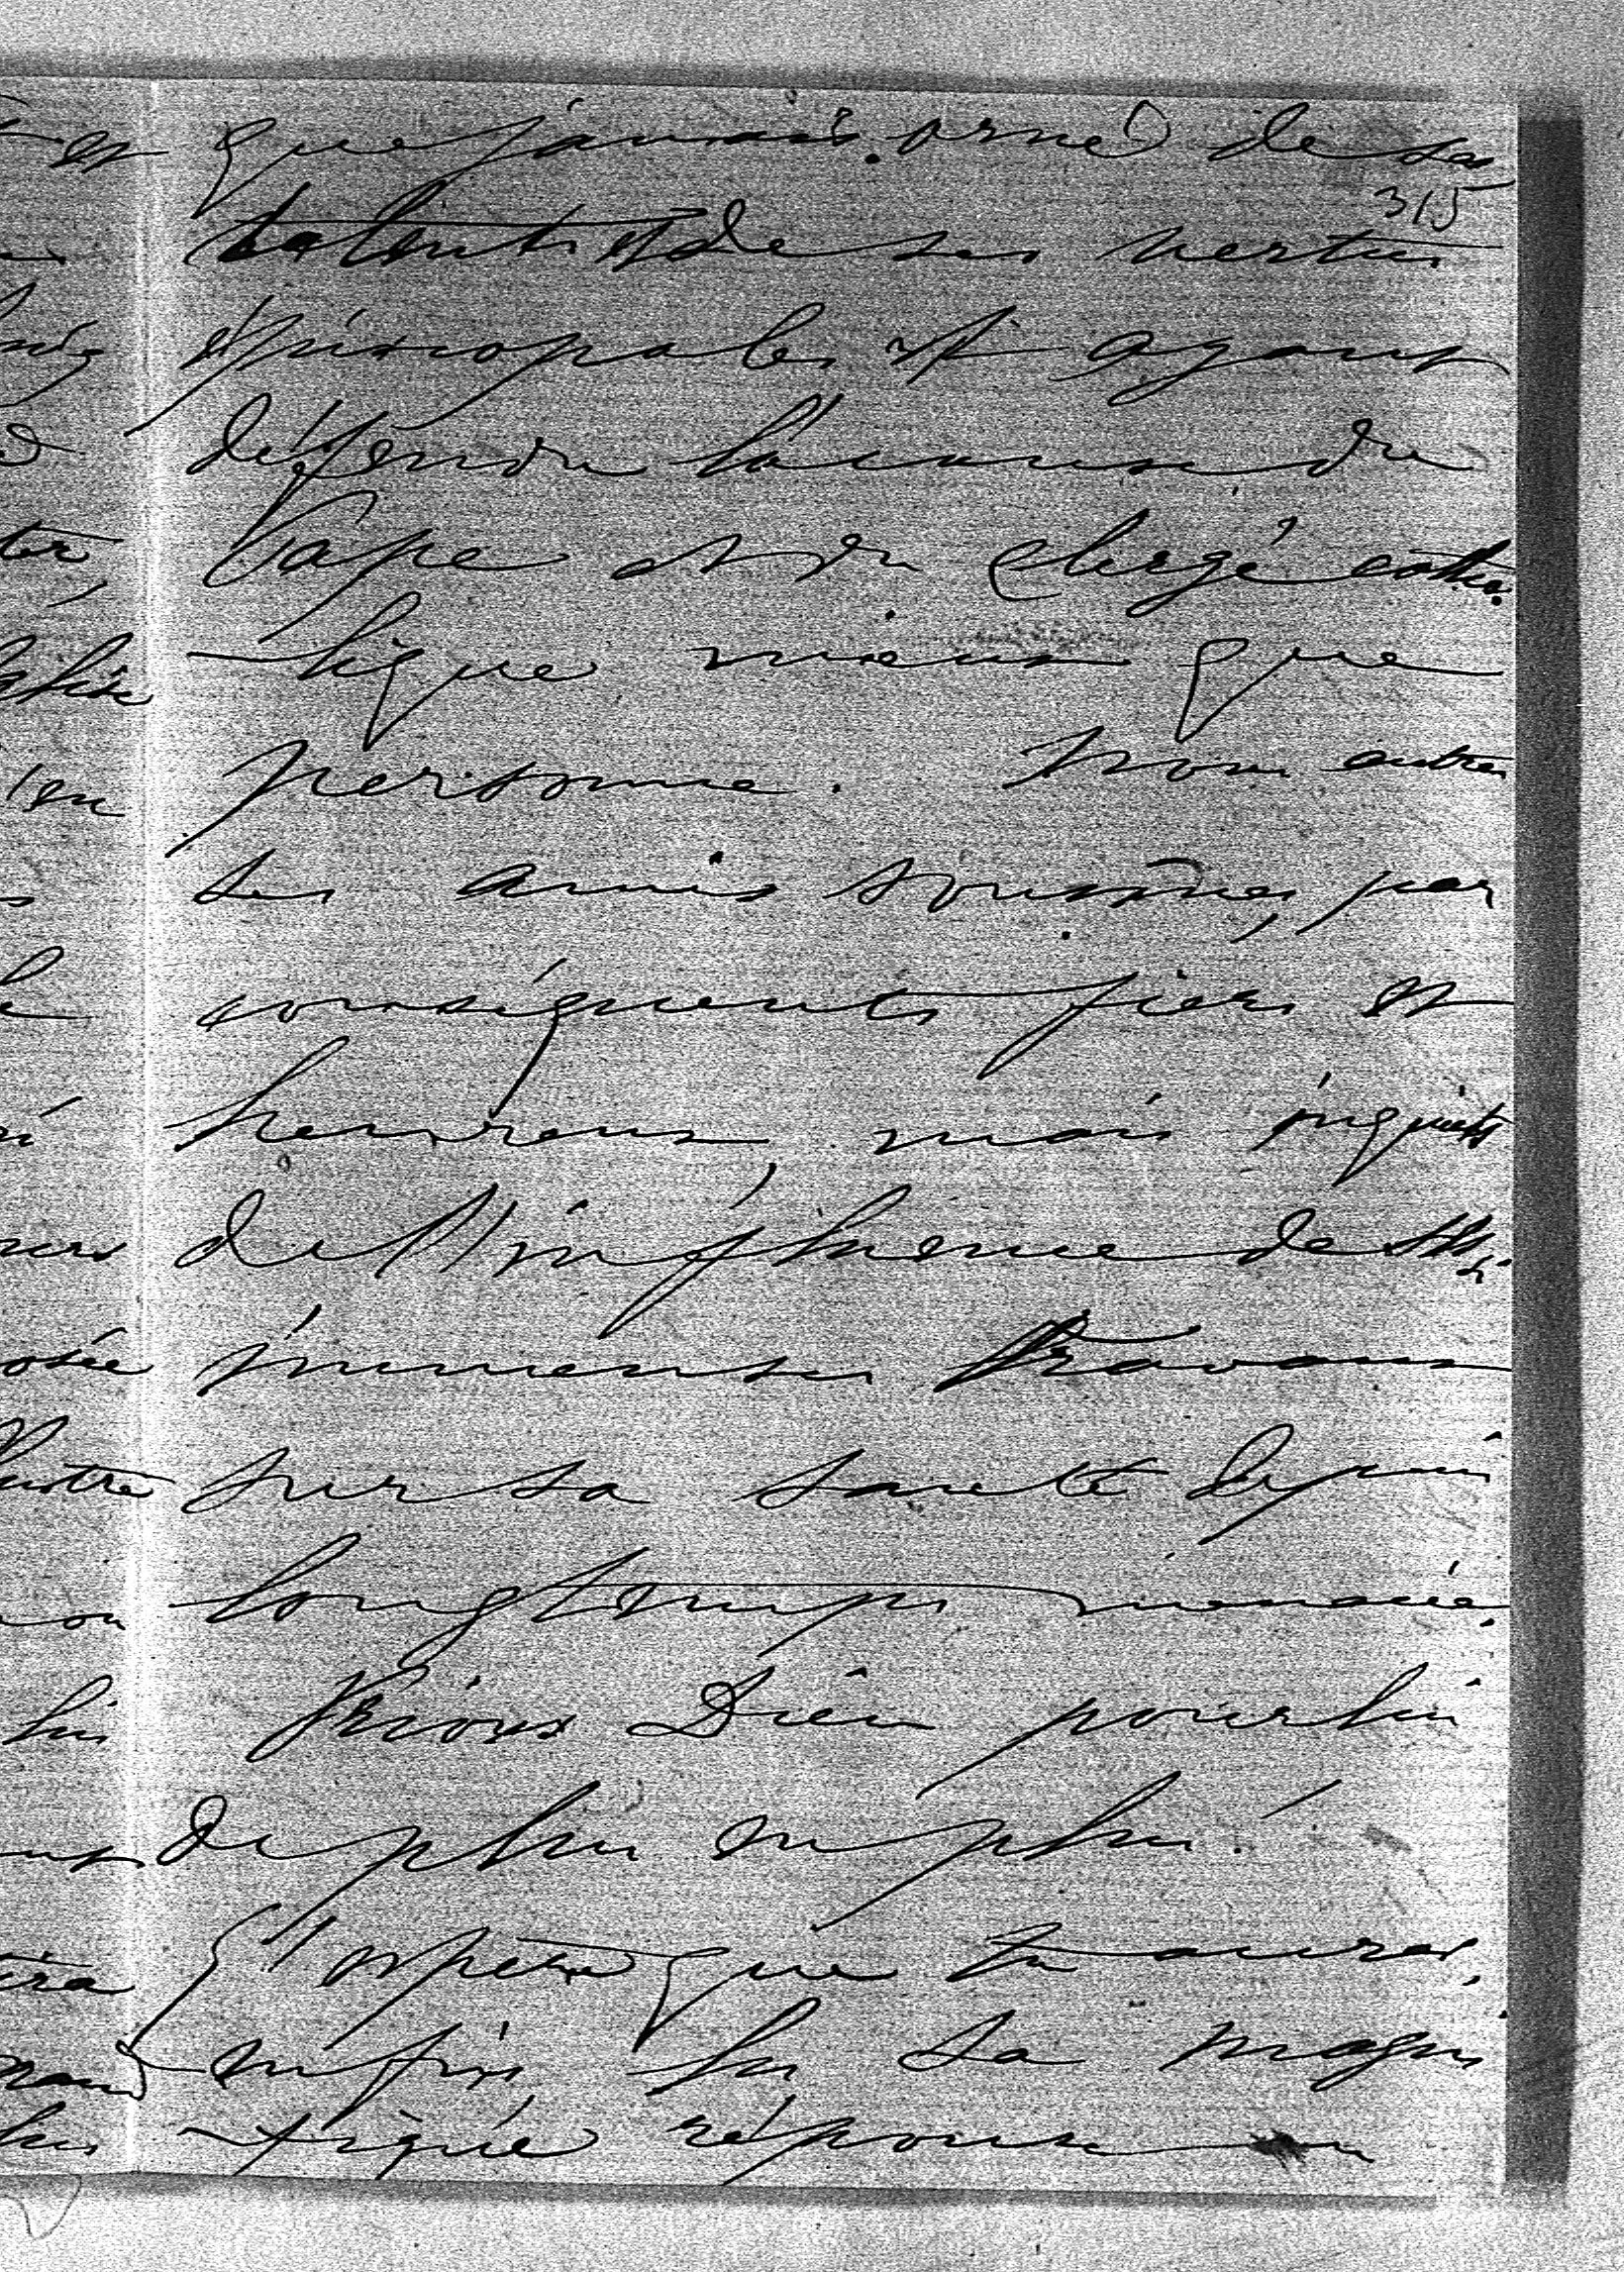 que jamais orné de ses
315
talents et de ses vertus
épiscopales et ayant
défendu la cause du
Pape et du Clergé catho
-lique mieux que
personne. Nous autres
ses amis sommes, par
conséquents fiers et
heureux, mais inquiets
de l'influence de ses
immenses travaux
sur sa santé depuis
longtemps menacée.
Prions Dieu pour lui
de plus en plus!
J'espère que tu auras
lu sa magni
-fique réponse